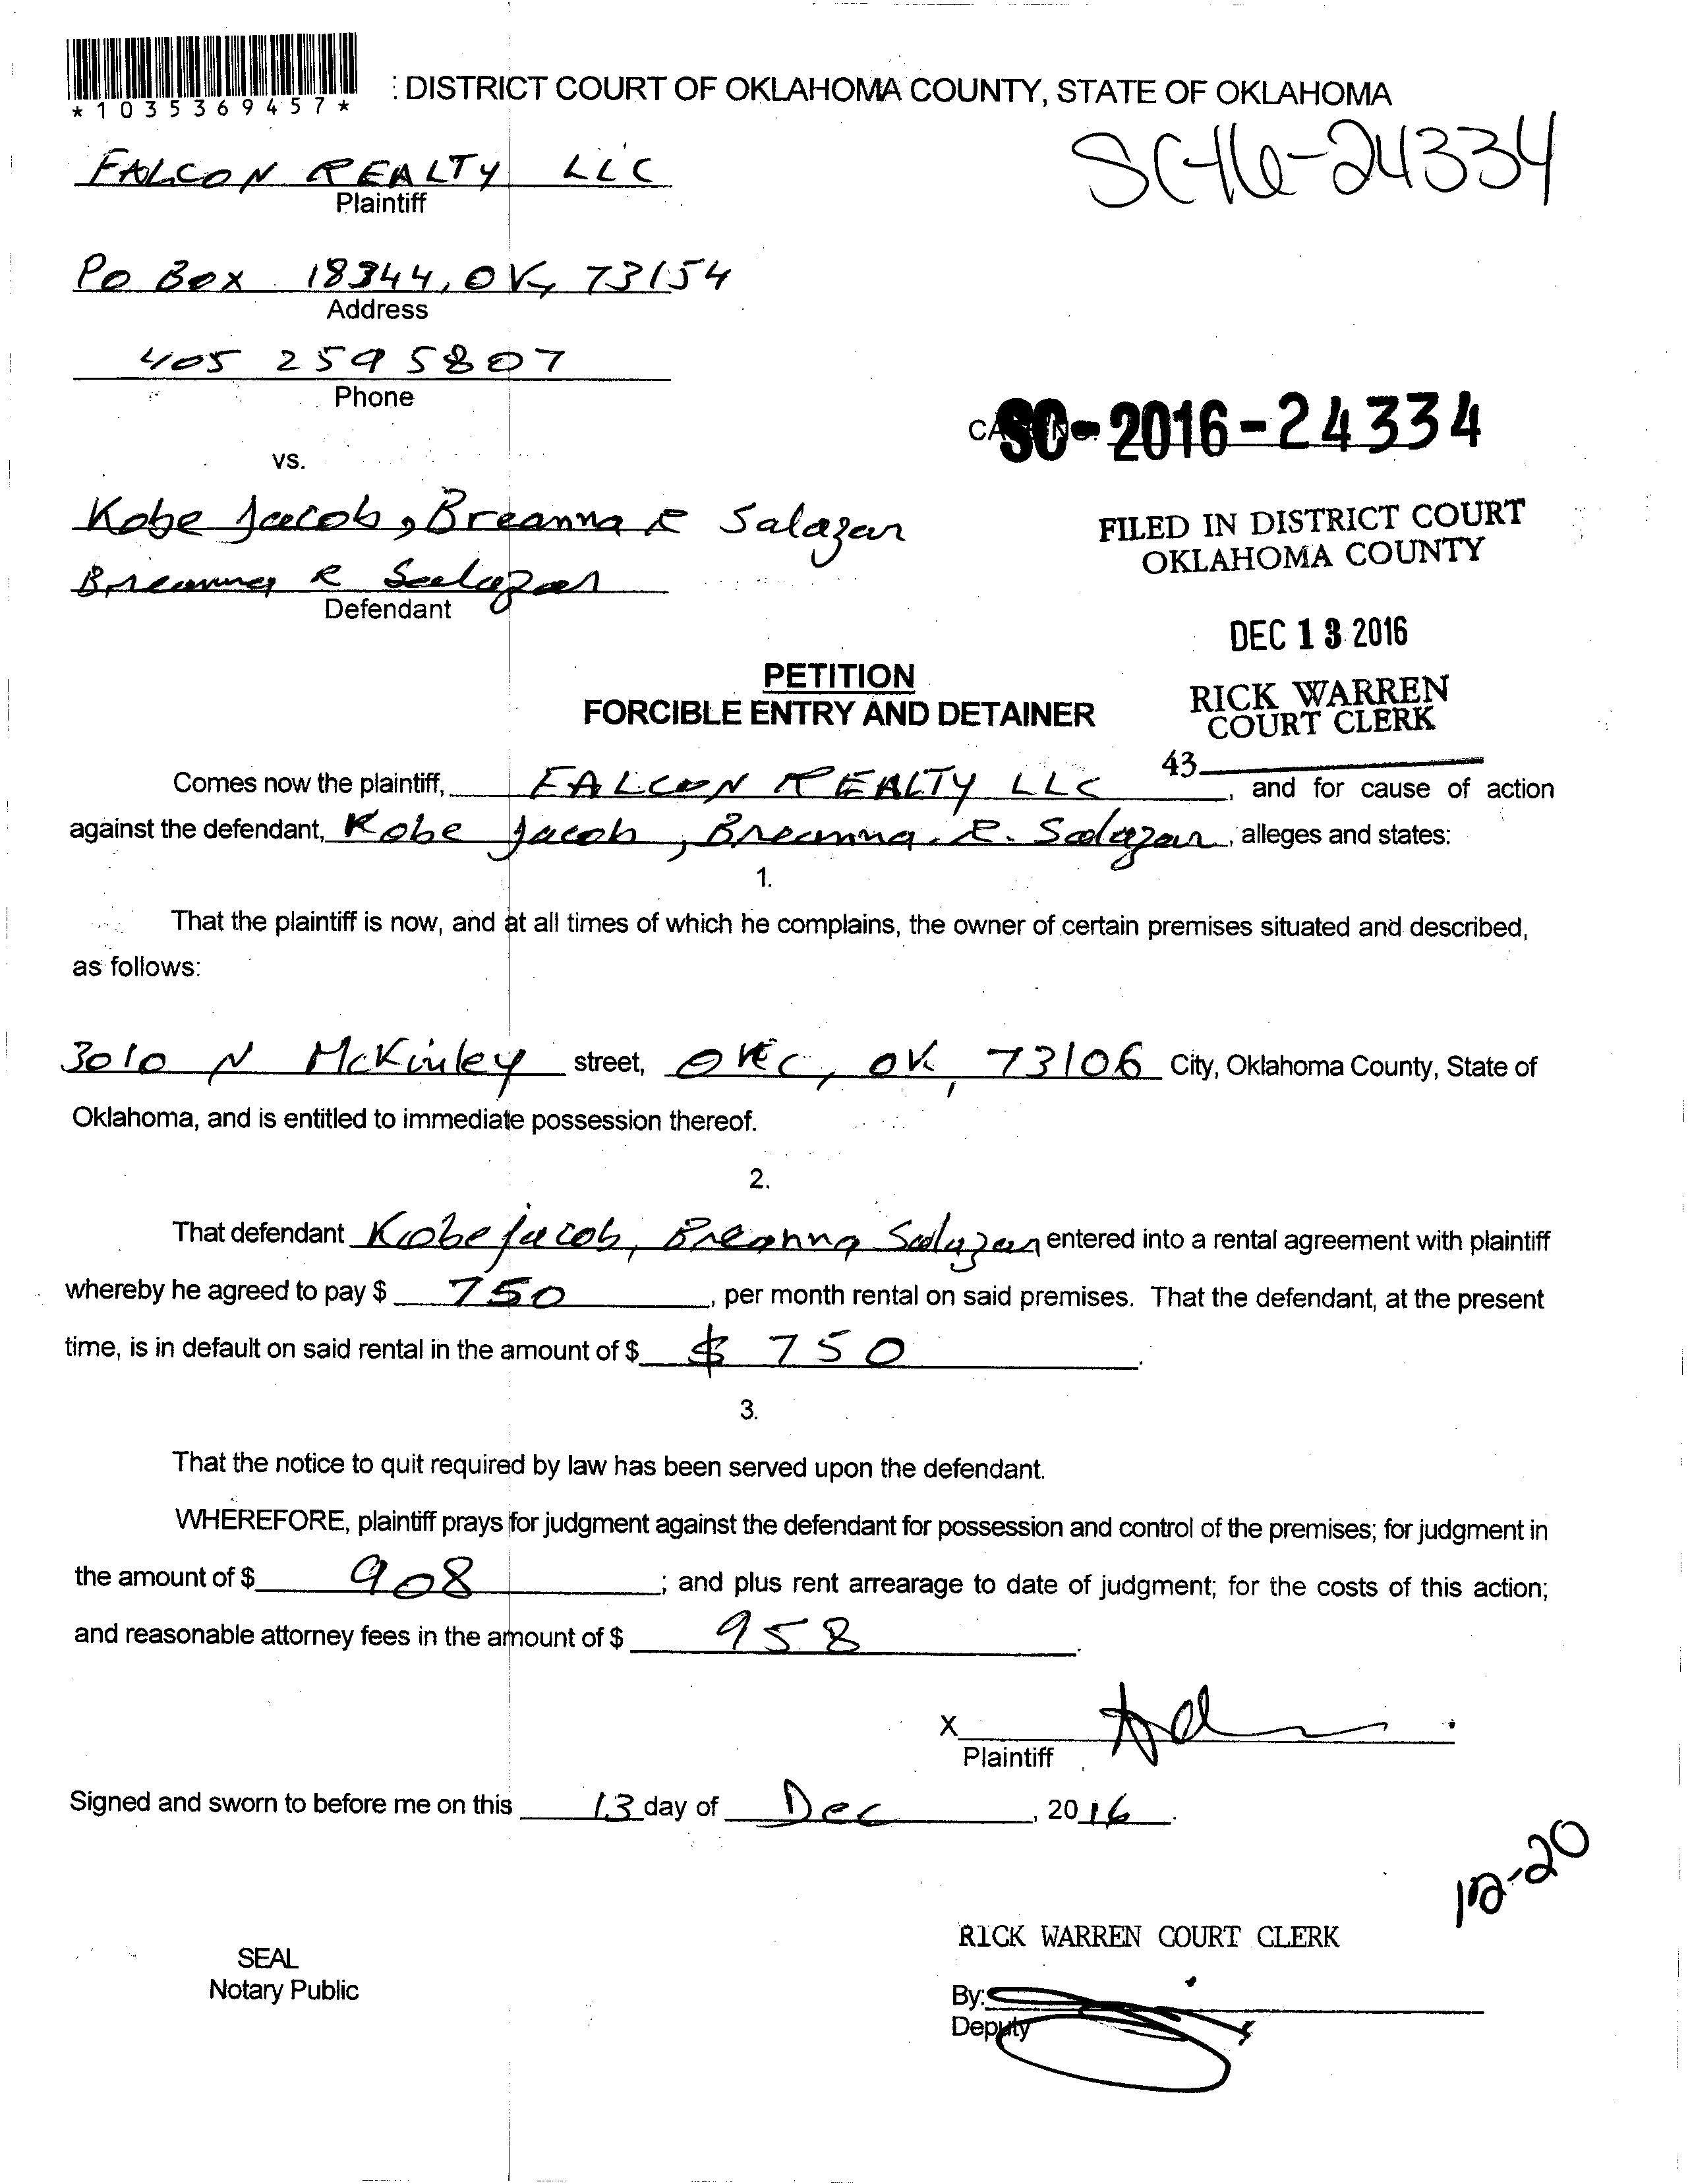 *1035369457*
: DISTRICT COURT OF OKLAHOMA COUNTY, STATE OF OKLAHOMA
SC-16-24334
FALCON REALTY LLC
Plaintiff
PO Box 18344, OK, 73154
Address
405 259 5807
Phone
SC-2016-24334
vs.
Kobe Jacob, Breanna R Salazar
FILED IN DISTRICT COURT
OKLAHOMA COUNTY
Breanna R Salazar
Defendant
DEC 13 2016
PETITION
FORCIBLE ENTRY AND DETAINER
RICK WARREN
COURT CLERK
43
Comes now the plaintiff, FALCON REALTY LLC, and for cause of action
against the defendant, Kobe Jacob, Breanna. R. Salazar, alleges and states:
1.
That the plaintiff is now, and at all times of which he complains, the owner of certain premises situated and described,
as follows:
3010 N McKinley street, OKC, OK, 73106 City, Oklahoma County, State of
Oklahoma, and is entitled to immediate possession thereof.
2.
That defendant Kobe Jacob, Breanna Salazar entered into a rental agreement with plaintiff
whereby he agreed to pay $ 750, per month rental on said premises. That the defendant, at the present
time, is in default on said rental in the amount of $ $ 750.
3.
That the notice to quit required by law has been served upon the defendant.
WHEREFORE, plaintiff prays for judgment against the defendant for possession and control of the premises; for judgment in
the amount of $ 908; and plus rent arrearage to date of judgment; for the costs of this action;
and reasonable attorney fees in the amount of $ 958.
X
Plaintiff
Signed and sworn to before me on this 13 day of Dec, 2016.
12-20
RICK WARREN COURT CLERK
SEAL
Notary Public
By:
Deputy